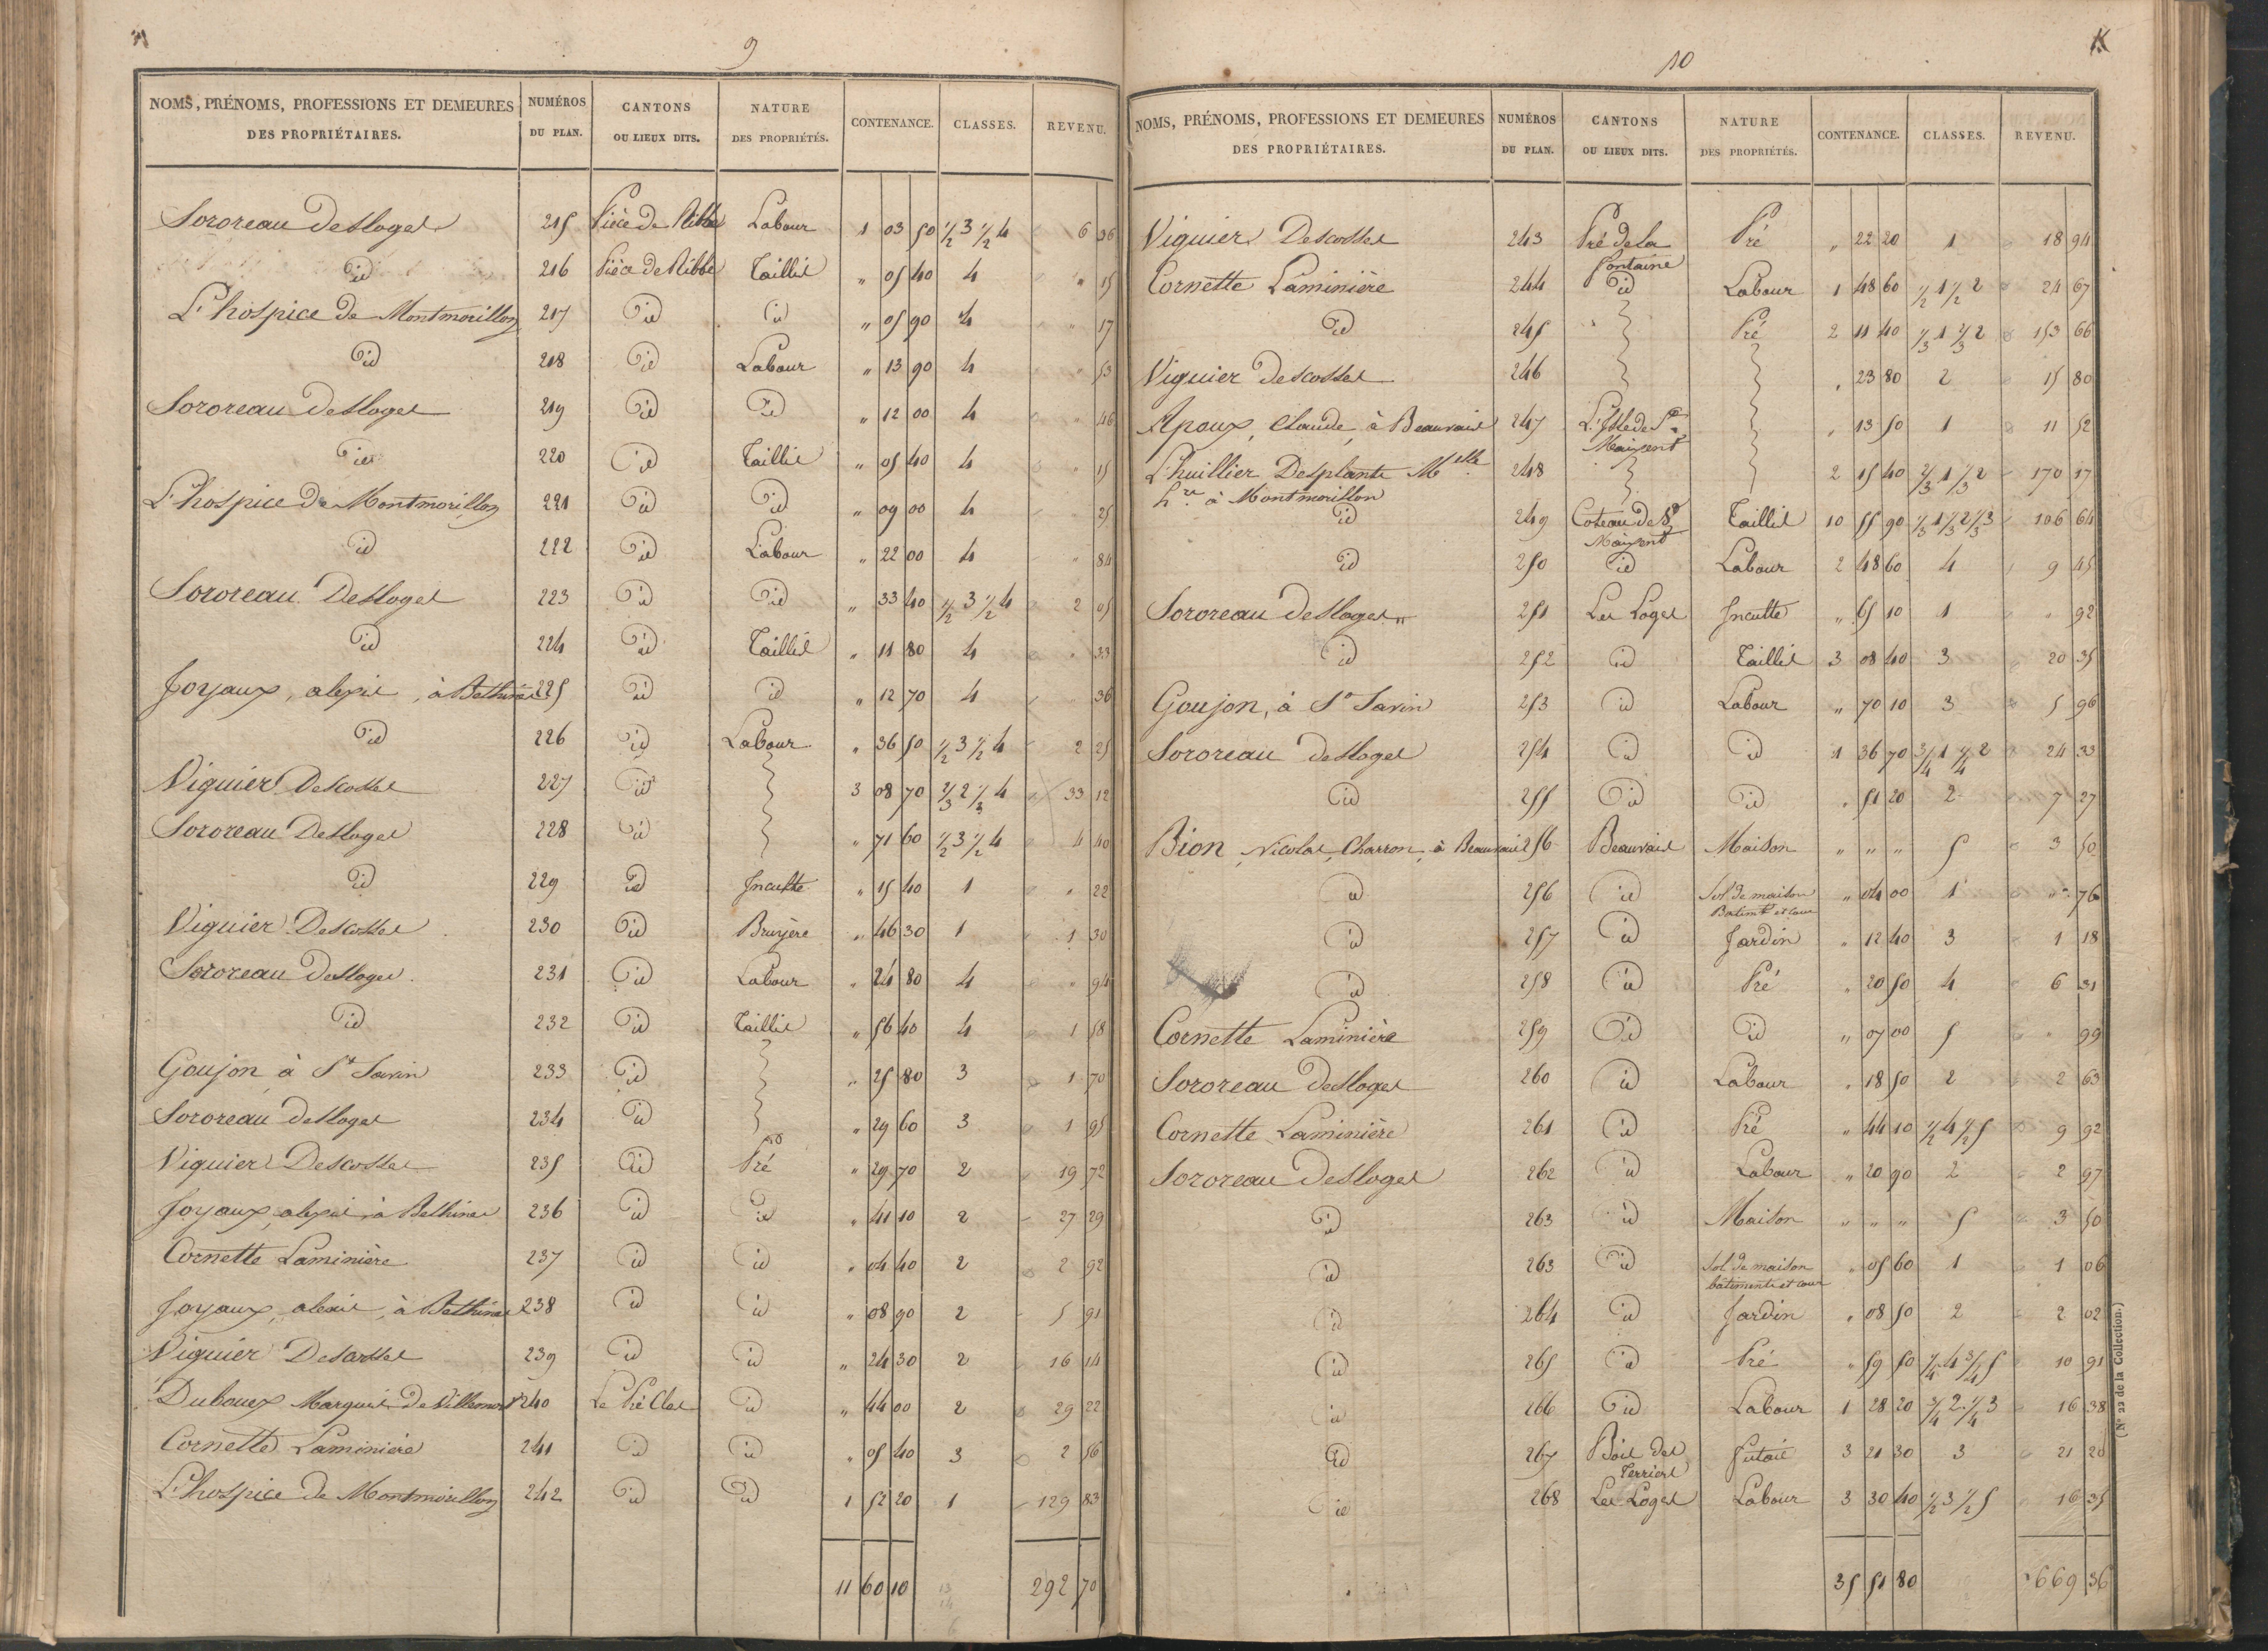 9
NOMS, PRÉNOMS, PROFESSIONS ET DEMEURES DES PROPRIÉTAIRES. NUMÉROS DU PLAN. CANTONS OU LIEUX DITS. NATURE DES PROPRIÉTÉS. CONTENANCE. CLASSES. REVENU.
Sororeau Desloges 215 Pièce de Ribbe Labour 1 03 50 1/2 3 1/2 4 6 36
id 216 Pièce de Ribbe Taillis " 05 40 4 " 15
L'hospice de Montmorillon 217 id id " 05 90 4 " 17
id 218 id Labour " 13 90 4 " 53
Sororeau Desloges 219 id id " 12 00 4 " 46
id 220 id Taillis " 05 40 4 " 15
L'hospice de Montmorillon 221 id id " 09 00 4 " 25
id 222 id Labour " 22 00 4 " 84
Sororeau Desloges 223 id id " 33 40 1/2 3 1/2 4 2 05
id 224 id Taillis " 11 80 4 " 33
Joyaux, alexis, à Bethines 225 id id " 12 70 4 " 36
id 226 id Labour " 36 50 1/2 3 1/2 4 2 25
Viguier Descosses 227 id 3 08 70 2/3 2 1/3 4 33 12
Sororeau Desloges 228 id " 71 60 1/2 3 1/2 4 4 40
id 229 id Inculte " 15 40 1 " 22
Viguier Descosses 230 id Bruyère " 46 30 1 1 30
Sororeau Desloges 231 id Labour " 24 80 4 " 94
id 232 id Taillis " 56 40 4 1 58
Goujon à St Savin 233 id " 25 80 3 1 70
Sororeau Desloges 234 id " 29 60 3 1 95
Viguier Descosses 235 id Pré " 29 70 2 19 72
Joyaux, alexis, à Bethines 236 id id " 41 10 2 27 29
Cornette Laminière 237 id id " 04 40 2 2 92
Joyaux, alexis, à Bethines 238 id id " 08 90 2 5 91
Viguier Descosses 239 id id " 24 30 2 16 14
Dubouex Marquis de Villemort 240 Le Pré Clos id " 44 00 2 29 22
Cornette Laminière 241 id id " 05 40 3 2 56
L'hospice de Montmorillon 242 id id 1 52 20 1 129 83
11 60 10 292 70
10
NOMS, PRÉNOMS, PROFESSIONS ET DEMEURES DES PROPRIÉTAIRES. NUMÉROS DU PLAN. CANTONS OU LIEUX DITS. NATURE DES PROPRIÉTÉS. CONTENANCE. CLASSES. REVENU.
Viguier Descosses 243 Pré de la fontaine Pré " 22 20 1 18 94
Cornette Laminière 244 id Labour 1 48 60 1/2 1 1/2 2 24 67
id 245 Pré 2 11 40 1/3 1 2/3 2 153 66
Viguier Descosses 246 " 23 80 2 15 80
Apoux, Claude, à Beauvais 247 L'Isle de St Maixent " 13 50 1 11 52
L'huillier Desplants Melle 248 2 15 40 2/3 1 1/3 2 170 17
hre à Montmorillon
id 249 Coteau de St Maixent Taillis 10 55 90 1/3 1 1/3 2 1/3 3 106 64
id 250 id Labour 2 48 60 4 9 45
Sororeau Desloges 251 Les Loges Inculte " 65 10 1 " 92
id 252 id Taillis 3 08 40 3 20 35
Goujon, à St Savin 253 id Labour " 70 10 3 5 96
Sororeau desloges 254 id id 1 36 70 3/4 1 1/4 2 24 33
id 255 id id " 51 20 2 7 27
Bion, Nicolas, Charron, à Beauvais 256 Beauvais Maison " " " 5 3 50
id 256 id Sol de maison Batimts et cour " 04 00 1 " 76
id 257 id Jardin " 12 40 3 1 18
id 258 id Pré " 20 50 4 6 31
Cornette Laminière 259 id id " 07 00 5 " 99
Sororeau Desloges 260 id Labour " 18 50 2 2 63
Cornette Laminière 261 id Pré " 44 10 1/2 4 1/2 5 9 92
Sororeau Desloges 262 id Labour " 20 90 2 2 97
id 263 id Maison " " " 5 3 50
id 263 id Sol de maison bâtiments et cour " 05 60 1 1 06
id 264 id Jardin " 08 50 2 2 02
id 265 id Pré " 59 50 1/4 4 3/4 5 10 91
id 266 id Labour 1 28 20 3/4 2 1/4 3 16 38
id 267 Bois des Terriers futaie 3 21 30 3 21 20
id 268 Les Loges Labour 3 30 40 1/2 3 1/2 5 16 35
35 51 80 669 36
(N° 22 de la Collection.)